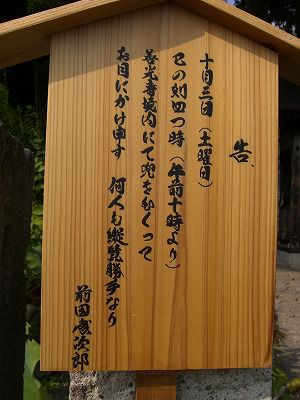 告、
十月三日（土曜日）
巳の刻四つ時（午前十時より）
善光寺境内にて兜をむくって
お目にかけ申す　何人も縦覧勝手なり
前田慶次郎